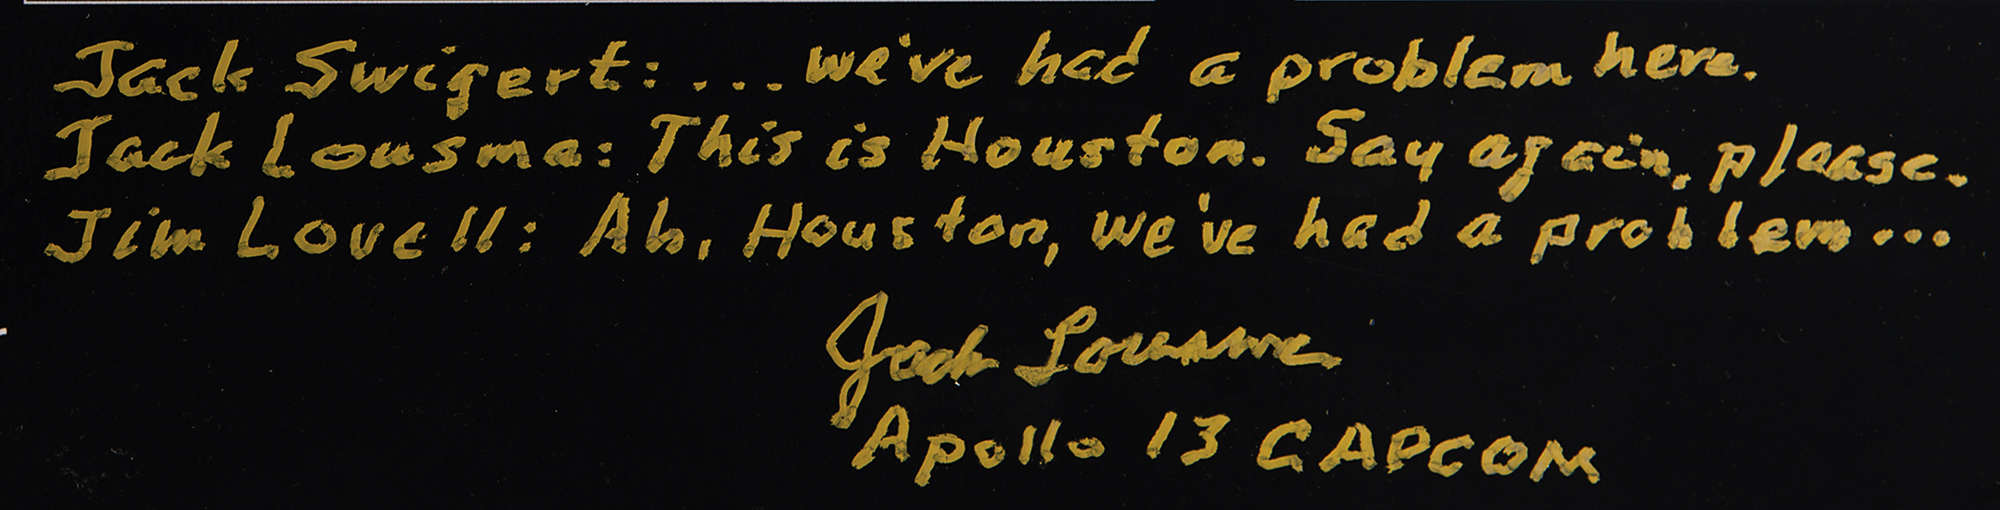 Jack Swigert: ...we've had a problem here.
Jack Lousma: This is Houston. Say again, please.
Jim Lovell: Ah, Houston, we've had a problem...
Jack Lousma
Apollo 13 CAPCOM